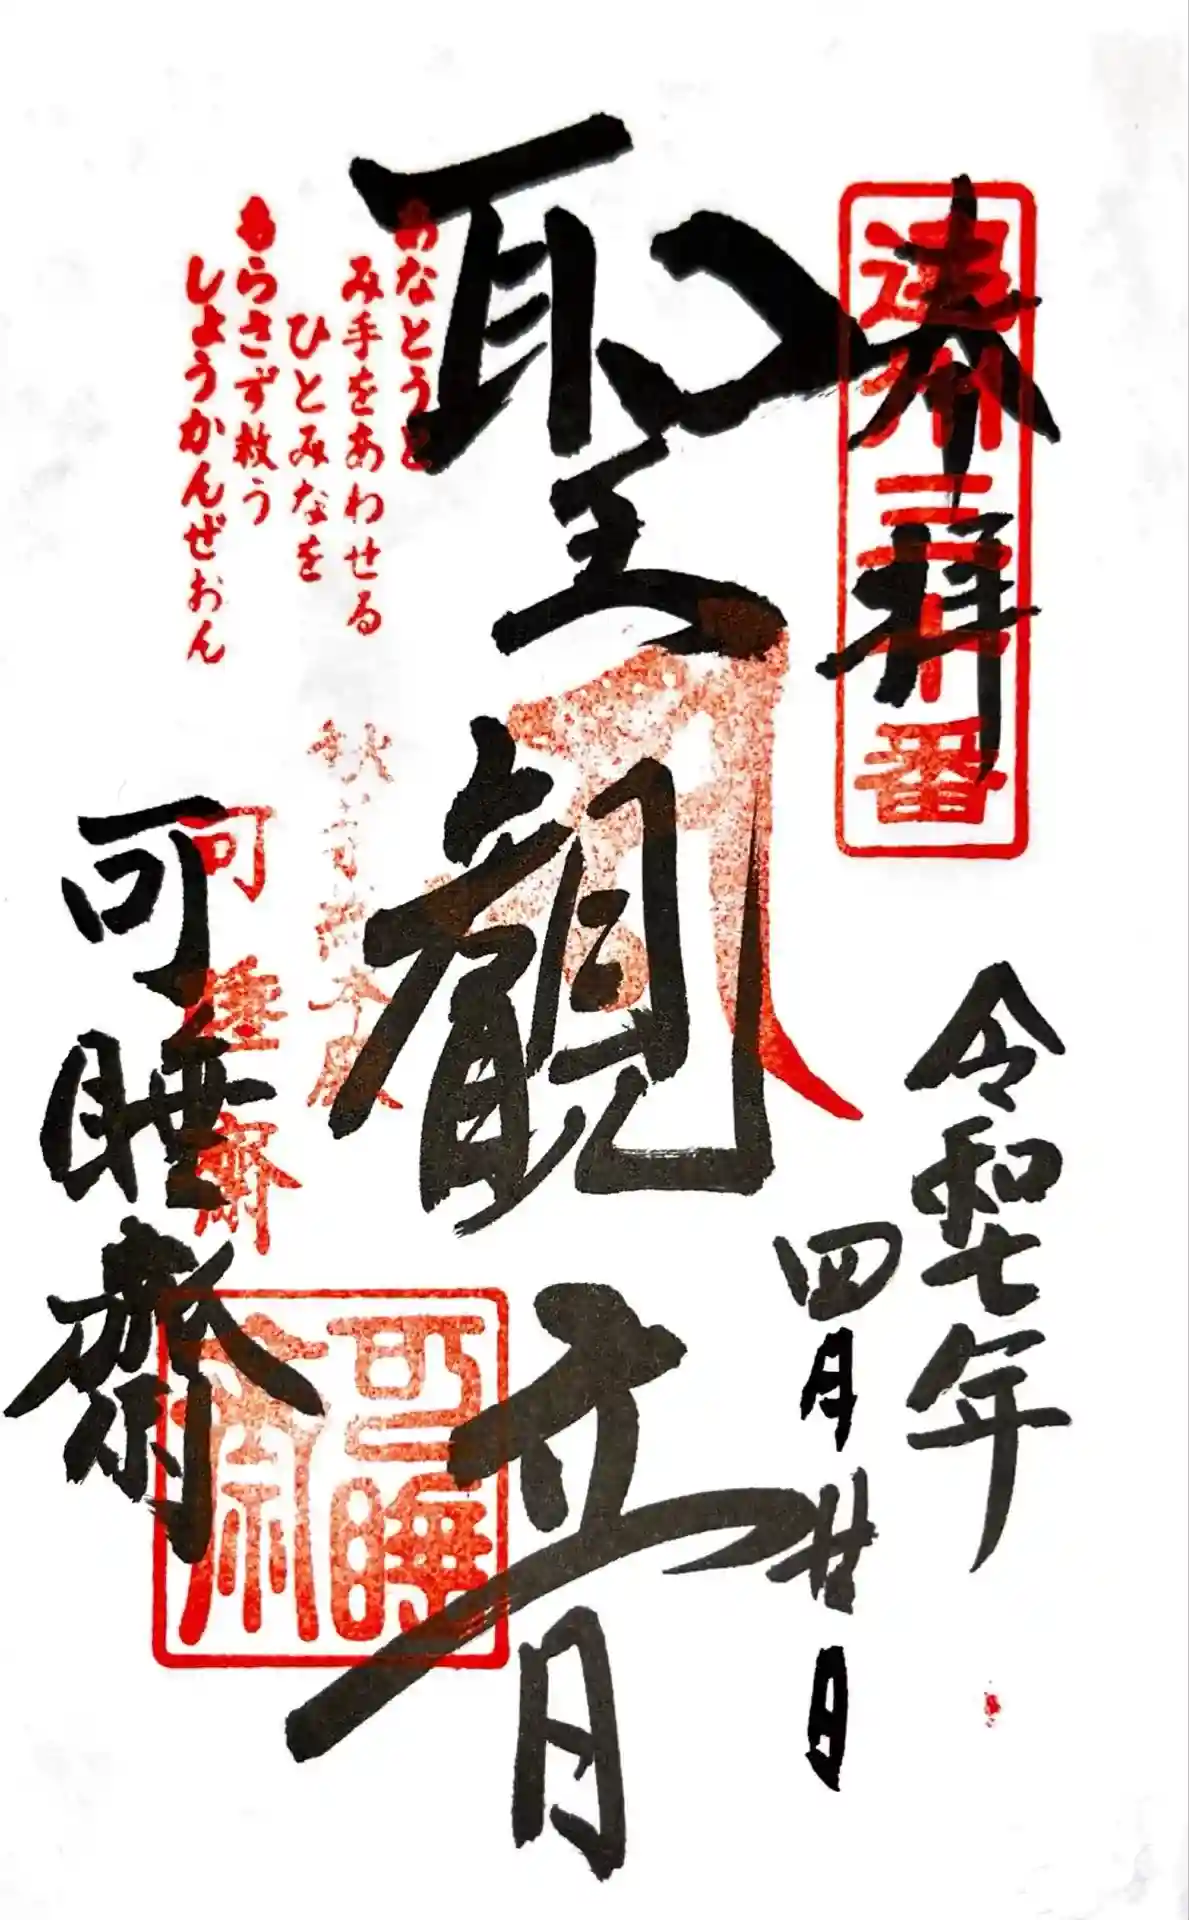 奉拝
遠州三十番
令和七年
四月廿日
聖観音
あなとうと
み手をあわせる
ひとみなを
もらさず救う
しょうかんぜおん
可睡齋
可睡齋
可睡齋